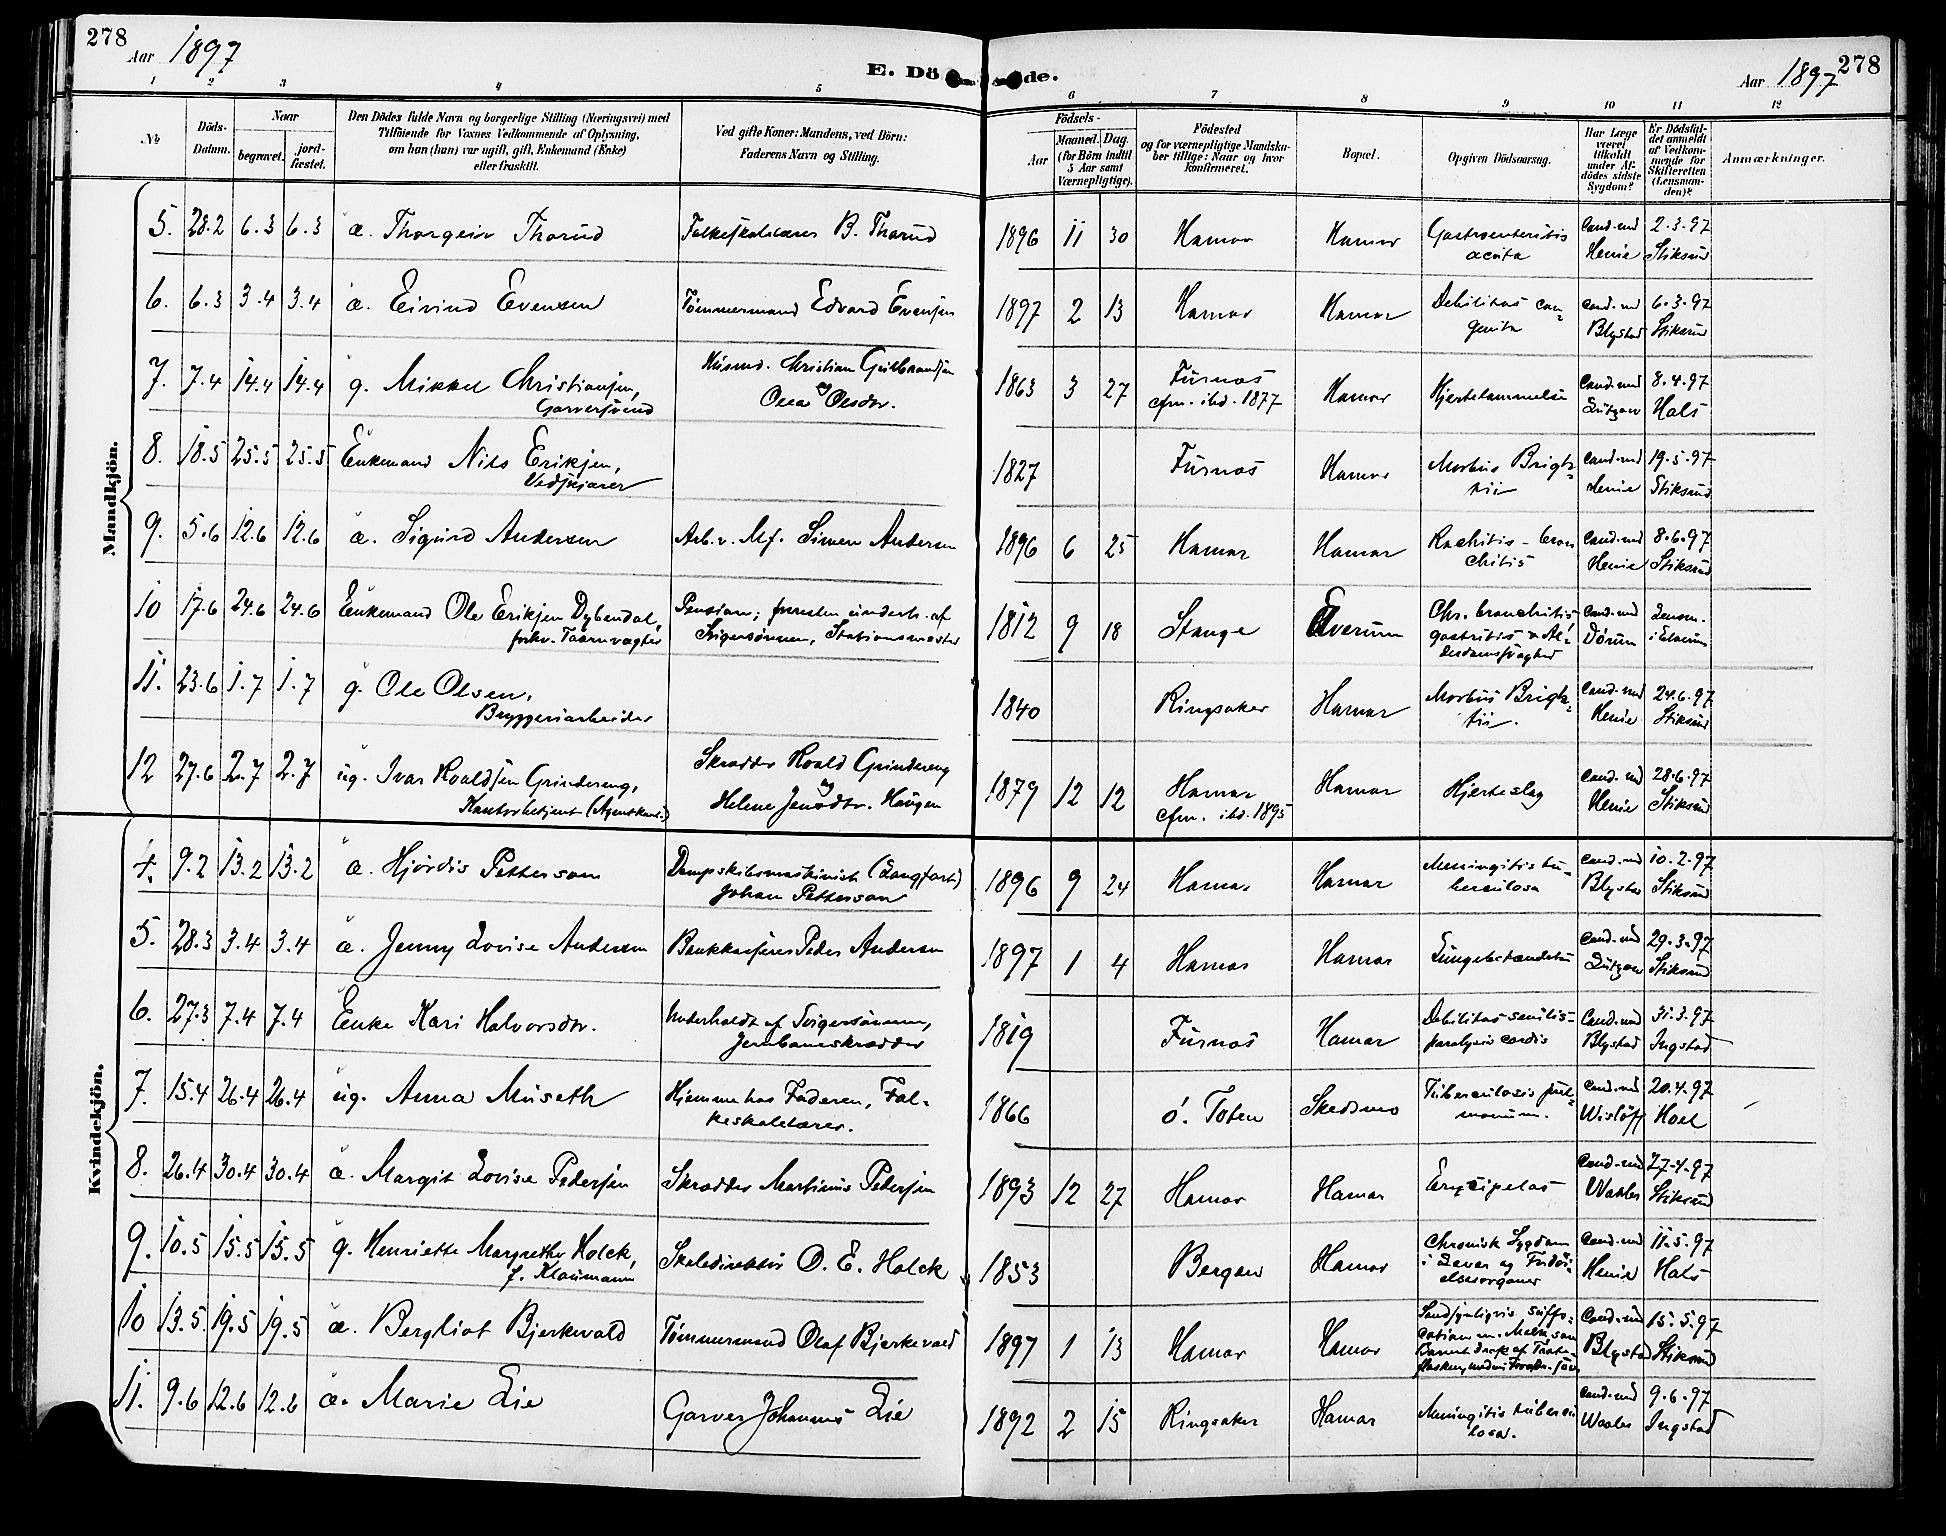 278
Aar 1897
E. Dö
de.
Aar 1897
278
1 2 3 4 5 6 7 8 9 10 11 12
No
Döds-
Datum.
Naar
begravet.
jord-
fæstet.
Den Dödes fulde Navn og borgerlige Stilling (Næringsvei) med
Tilföiende for Voxnes Vedkommende af Oplysning,
om han (hun) var ugift, gift, Enkemand (Enke)
eller fraskilt.
Ved gifte Koner: Mandens, ved Börn:
Faderens Navn og Stilling.
Födsels-
Aar
Maaned. Dag.
(for Börn indtil
5 Aar samt
Værnepligtige).
Födested
og for værnepligtige Mandska-
ber tillige: Naar og hvor
konfirmeret.
Bopæl.
Opgiven Dödsaarsag.
Har Læge
været
tilkaldt
under Af-
dödes sidste
Sygdom?
Er Dödsfal-
det anmeldt
af Vedkom-
mende for
Skifteretten
(Lensman-
den)?
Anmærkninger.
Mandkjön.
5. 28.2 6.3 6.3 æ. Thorgeir Thorud Folkeskolelærer B. Thorud 1896 11 30 Hamar Hamar Gastroenteritis acuta Cand. med Henie 2.3.97 Stiksrud
6. 6.3 3.4 3.4 æ. Eivind Evensen Tømmermand Edvard Evensen 1897 2 13 Hamar Hamar Debilitas con-
genita Cand. med Blystad 6.3.97 Stiksrud
7. 7.4 14.4 14.4 g. Mikkel Christiansen,
Garversvend Husmd. Christian Gulbrandsen
og
Olea Olsdtr. 1863 3 27 Furnes
cfm. ibd. 1877 Hamar Hjertelammelse Cand. med Lützow 8.4.97 Hals
8. 18.5 25.5 25.5 Enkemand Nils Eriksen,
Vedskjærer 1827 Furnes Hamar Morbus Brigh-
tii Cand. med Henie 19.5.97 Stiksrud
9. 5.6 12.6 12.6 æ. Sigurd Andersen Arb. v. Mj. Simen Andersen 1896 6 25 Hamar Hamar Rachitis - bron
chitis Cand. med Henie 8.6.97 Stiksrud
10 17.6 24.6 24.6 Enkemand Ole Eriksen Dybendal,
forhv. Taarnvægter Pension; forresten underh. af
Svigersønnen, Stationsmester 1812 9 18 Stange Elverum Chr. bronchitis
gastritis & Al-
derdomssvaghed Cand. med Dørum Lensm.
i Elverum
11. 23.6 1.7 1.7 g. Ole Olsen,
Bryggeriarbeider 1840 Ringsaker Hamar Morbus Brigh-
tii. Cand. med Henie 24.6.97 Stiksrud
12 27.6 2.7 2.7 ug. Ivar Roaldsen Grindereng,
Kontorbetjent Skrædder Roald Grindereng
og
Helene Jensdtr. Haugen 1879 12 12 Hamar
cfm. ibd. 1895 Hamar Hjerteslag Cand. med Henie 28.6.97 Stiksrud
Kvindekjön.
4. 9.2 13.2 13.2 æ. Hjørdis Petterson Dampskibsmaskinist (Langfart)
Johan Petterson 1896 9 24 Hamar Hamar Meningitis tu-
berculosa Cand. med Blystad 10.2.97 Stiksrud
5. 28.3 3.4 3.4 æ. Jenny Lovise Andersen Bankkasserer Peder Andersen 1897 1 4 Hamar Hamar Lungebetændelse Cand. med Lützow 29.3.97 Stiksrud
6. 27.3 7.4 7.4 Enke Kari Halvorsdtr. Underholdt af Svigersønnen,
Jernbaneskrædder 1819 Furnes Hamar Debilitas senilis-
paralysis cordis Cand. med Blystad 31.3.97 Ingstad
7. 15.4 26.4 26.4 ug. Anna Museth Hjemme hos Faderen, Fol-
keskolelærer. 1866 Ö. Toten Skedsmo Tuberculosis pul-
monum. Cand. med Wisløff 20.4.97 Hoel
8. 26.4 30.4 30.4 æ. Margit Lovise Pedersen Skrædder Martinius Pedersen 1893 12 27 Hamar Hamar Erysipelas Cand. med Waaler 27.4.97 Stiksrud
9. 10.5 15.5 15.5 g. Henriette Margrethe Holck,
f. Klaumann Skoledirektør O. E. Holck 1853 Bergen Hamar Chronisk Sygdom
i Lever og Fordøi-
elsesorganer Cand. med Henie 11.5.97 Hals
10 13.5 19.5 19.5 æ. Bergliot Bjerkevold Tømmermand Olaf Bjerkevold 1897 1 13 Hamar Hamar Sandsynligvis suffo-
cation m. Melk, som
Barnet drak af Tatte-
flasken Cand. med Blystad 15.5.97 Stiksrud
11. 9.6 12.6 12.6 æ. Marie Lie Garver Johannes Lie 1892 2 15 Ringsaker Hamar Meningitis tubercu
losa. Cand. med Waaler 9.6.97 Ingstad